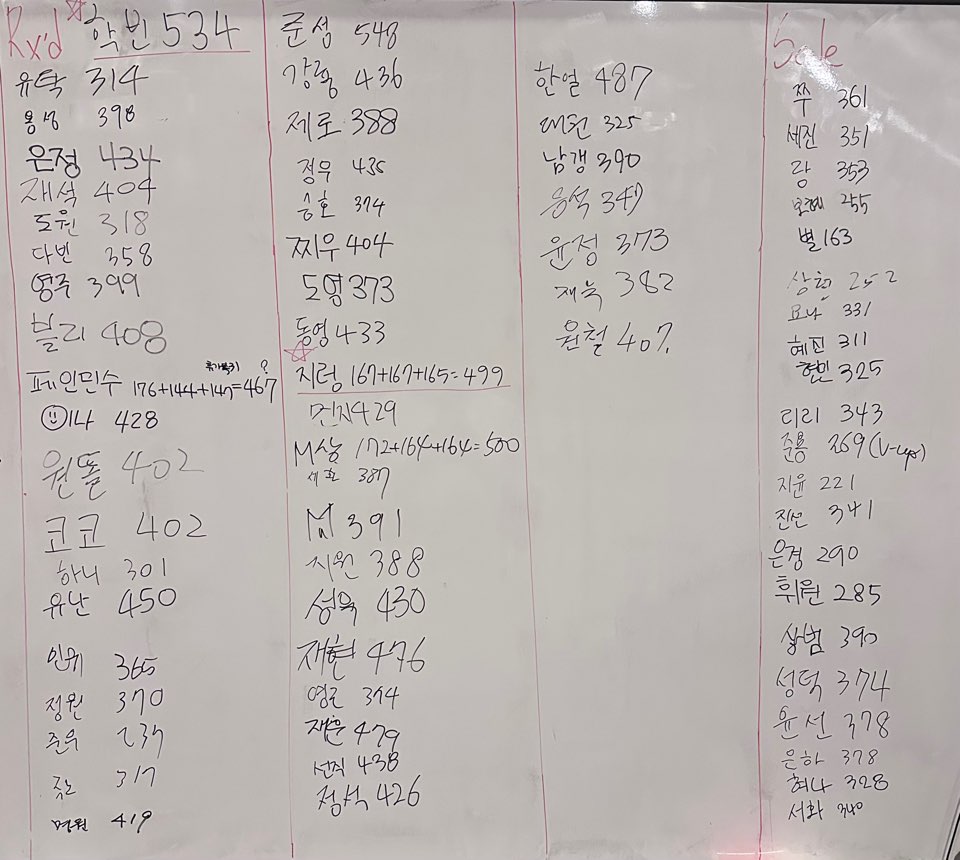 Rx'd 학빈 534
유탁 314
용성 398
은정 434
재석 404
도원 318
다빈 358
영주 399
블리 408
페인민수 176+144+147=467 ?
미나 428
원똘 402
코코 402
하니 301
유난 450
인위 365
정원 370
준우 237
317
명원 419
준섭 548
강룡 436
제로 388
정우 435
승호 374
찌우 404
도영 373
동영 433
지렁 167+167+165=499
민지 429
M상 172+164+164=500
세환 387
M 391
지원 388
성욱 430
재현 476
영근 374
재윤 479
선직 438
정석 426
한얼 487
대원 325
남갱 390
응석 347
윤정 373
재욱 382
원철 407
Scale
쭈 361
세진 351
랑 353
보혜 255
별 163
상현 252
요나 331
혜진 311
현민 325
리리 343
준용 269 (V-ups)
지윤 221
진선 341
은경 290
휘원 285
상범 390
성덕 374
윤선 378
은하 378
혜나 328
서화 340